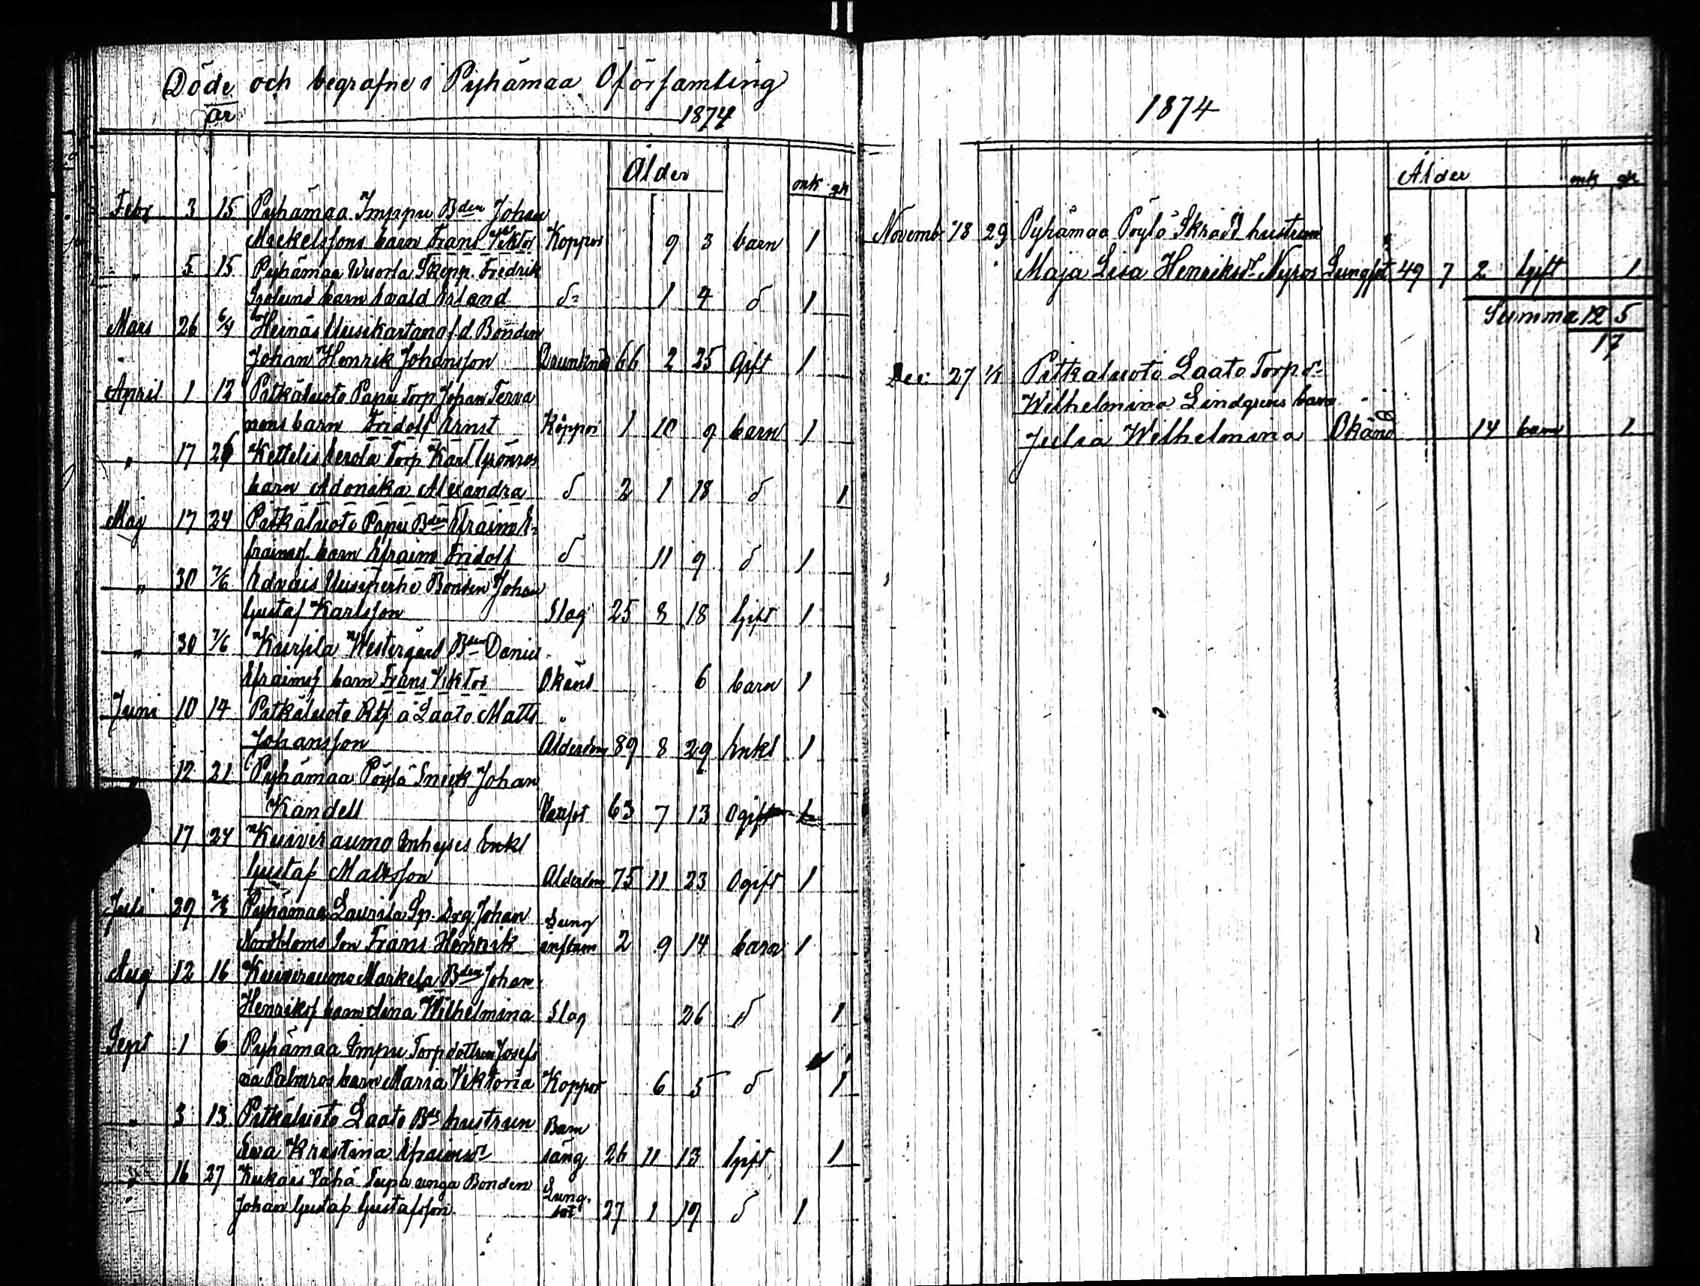 Döde och begrafne i Pyhämaa församling
år 1874
Ålder
mk qk
Febr 3 15 Pyhämaa Imppu Bden Johan
Mickelssons barn Frans Viktor Koppor 9 3 barn 1
" 5 15 Pyhämaa Wuorla Skepp. Fredrik
barn Erland do 1 4 d 1
Mars 26 6/4 Heinäs Uusikartano f.d. Bonden
Johan Henrik Johansson 66 2 25 Gift 1
April 1 12 Pitkäluoto Papu Torp Johan Terva
nens barn Fridolf Ernst Koppor 1 10 9 barn 1
" 17 26 Ketteli Torp Karl Grönros
barn Alexandra d 2 1 18 d 1
Maj 17 24 Pitkäluoto Papu Bden Efraim E-
fraimss. barn Efraim Fridolf d 11 9 d 1
" 30 7/6 Bonden Johan
Gustaf Karlsson Slag 25 8 18 Gift 1
" 30 7/6 Kurjila Westergård Bden Daniel
Efraimss barn Frans Viktor Okänd 6 barn 1
Juni 10 14 Pitkäluoto å Laato Matts
Johansson Ålderdom 89 8 29 Enkl 1
" 12 21 Pyhämaa Pöylä Snick Johan
Kandell 63 7 13 Ogift
17 24 Kuivirauma Inhyses Enkl
Gustaf Mattsson Ålderdom 75 11 23 Ogift 1
Juli 29 Pyhämaa Laurila Johan Lung
Nordbloms Son Frans Henrik inflam 2 9 14 barn 1
Aug 12 16 Kuivirauma Markela Bden Johan
Henrikss barn Wilhelmina Slag 26 d 1
Sept 1 6 Pyhämaa Impu Torpdottren Josefi
na Palmros barn Maria Viktoria Koppor 6 5 d 1
" 3 13 Pitkäluoto Laato Bds hustrun Barn
Eva Kristina Efraimsdr säng 26 11 13 Gift 1
" 16 27 Kukais Vähä Tupa unga Bonden Lung
Johan Gustaf Gustafsson sot 27 1 19 d 1
1874
Ålder
mk qk
Novemb 18 29 Pyhämaa Pöylä Skrädd hustrun
Maja Lisa Henriksdr Nyroos Lungsot 49 7 2 Gift 1
Summa 12 5
17
Dec 27 Pitkaluoto Laato Torpdr
Wilhelmina Lindqvists barn
Julia Wilhelmina Okänd 14 barn 1